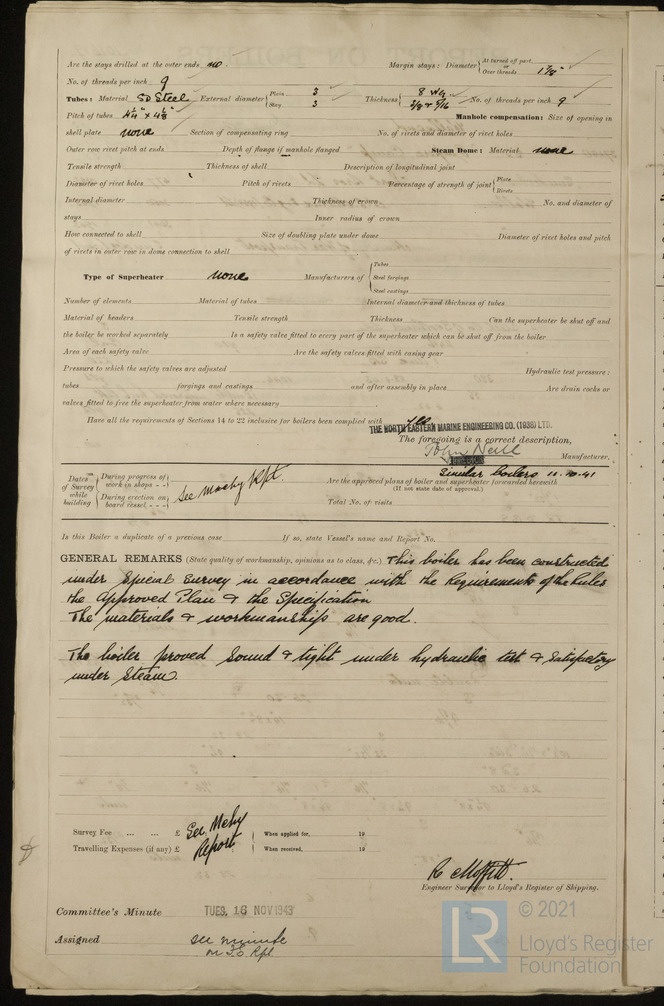 Are the stays drilled at the outer ends no. Margin stays : Diameter { At turned off part, or Over threads 1 7/8"
No. of threads per inch 9
Tubes : Material SD Steel External diameter { Plain 3 Stay 3 Thickness { 8 WG 3/8 & 5/16 No. of threads per inch 9
Pitch of tubes 4 1/4" x 4 1/8" Manhole compensation: Size of opening in
shell plate none Section of compensating ring No. of rivets and diameter of rivet holes
Outer row rivet pitch at ends Depth of flange if manhole flanged Steam Dome : Material none
Tensile strength Thickness of shell Description of longitudinal joint
Diameter of rivet holes Pitch of rivets Percentage of strength of joint { Plate Rivets
Internal diameter Thickness of crown No. and diameter of
stays Inner radius of crown
How connected to shell Size of doubling plate under dome Diameter of rivet holes and pitch
of rivets in outer row in dome connection to shell
Type of Superheater none Manufacturers of { Tubes Steel forgings Steel castings
Number of elements Material of tubes Internal diameter and thickness of tubes
Material of headers Tensile strength Thickness Can the superheater be shut off and
the boiler be worked separately Is a safety valve fitted to every part of the superheater which can be shut off from the boiler
Area of each safety valve Are the safety valves fitted with easing gear
Pressure to which the safety valves are adjusted Hydraulic test pressure :
tubes forgings and castings and after assembly in place Are drain cocks or
valves fitted to free the superheater from water where necessary
Have all the requirements of Sections 14 to 22 inclusive for boilers been complied with
THE NORTH EASTERN MARINE ENGINEERING CO. (1938) LTD.
The foregoing is a correct description,
John Neill
Manufacturer.
Dates of Survey while building { During progress of work in shops - - During erection on board vessel - - - } See Machy Rpt. Are the approved plans of boiler and superheater forwarded herewith Similar boilers 10.10.41
(If not state date of approval.)
Total No. of visits
Is this Boiler a duplicate of a previous case If so, state Vessel's name and Report No.
GENERAL REMARKS (State quality of workmanship, opinions as to class, &c.) This boiler has been constructed
under Special Survey in accordance with the Requirements of the Rules
the Approved Plan & the Specification
The materials & workmanship are good.
The boiler proved sound & tight under hydraulic test & satisfactory
under steam.
Survey Fee ... ... £ See Mchy When applied for, 19
Travelling Expenses (if any) £ Report. When received, 19
R Moffitt.
Engineer Surveyor to Lloyd's Register of Shipping.
Committee's Minute TUES. 16 NOV 1943
Assigned see minute
on F.E. Rpt.
LR © 2021
Lloyd's Register
Foundation